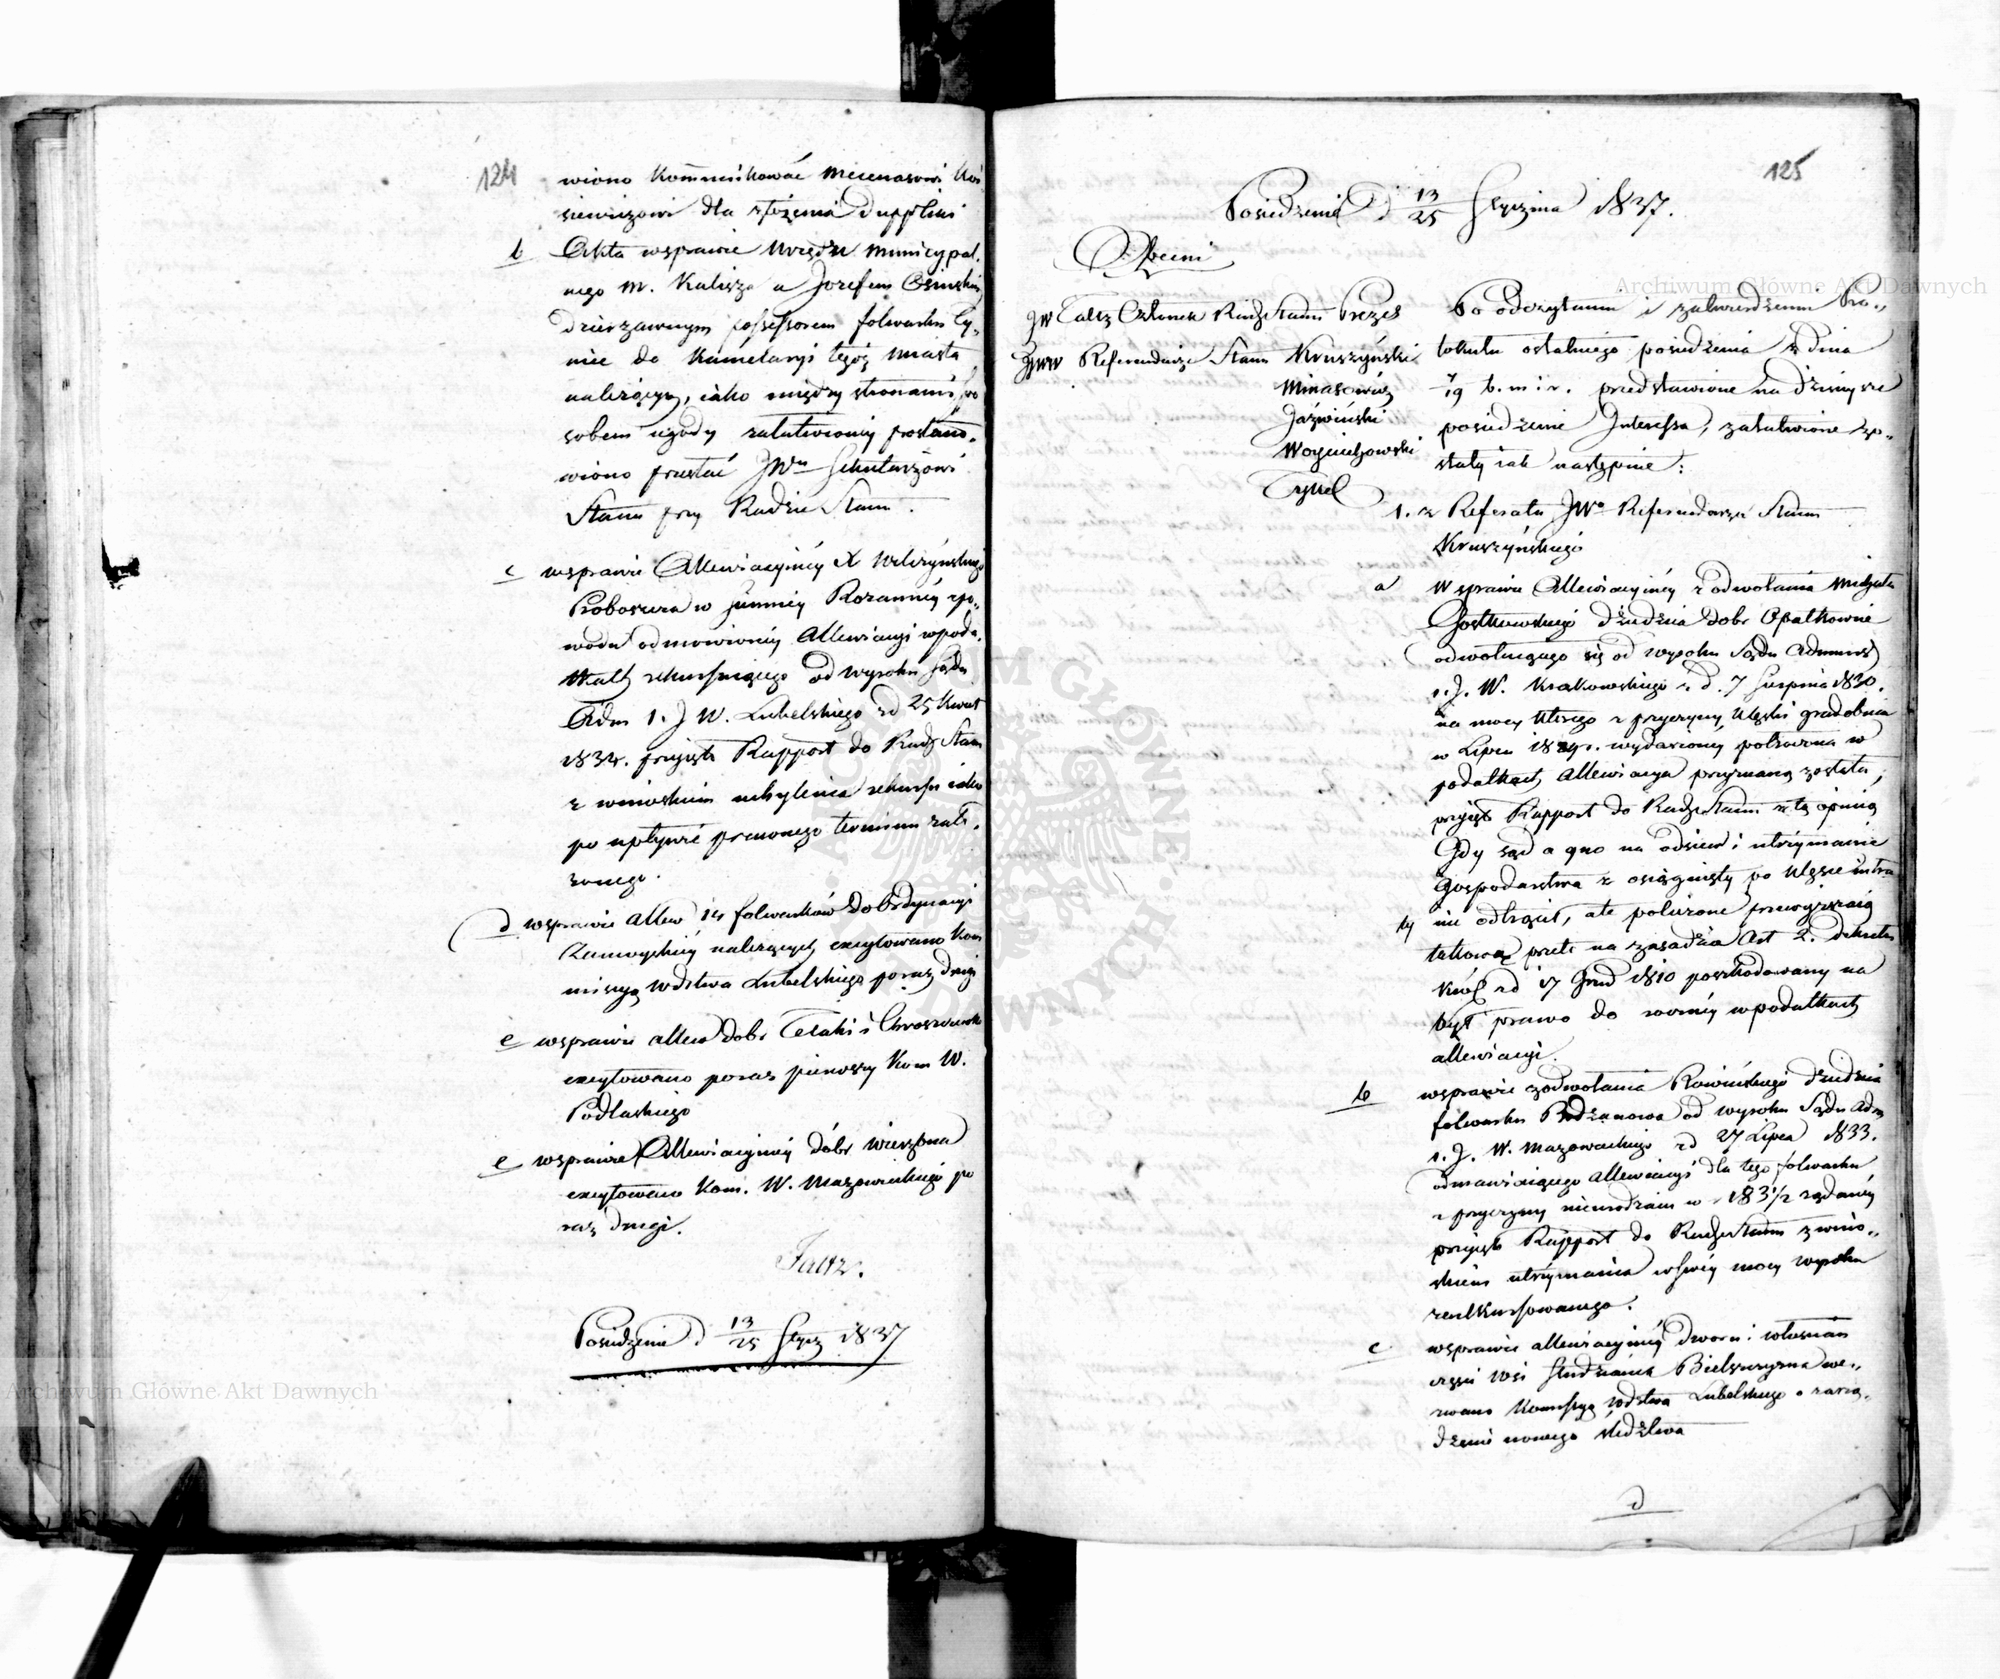 124
wiono kommunikować Mecenasowi Koi
siewiczowi dla złożenia Duppliki
b Akta wsprawie Urzędu Municypal.
nego M. Kalisza a Jozefem Osinskim
Dzierzawnym possessorem folwarku Ty,
niec do Kamelaryi tegoż miasta
należącym, jako między stronami spo
sobem ugody załatwioney postano.
wiono przesłać JWu Sekretarzowi
Stanu przy Radzie Stanu.
c wsprawie Allewiacyiney X Wilczyńskiego
Proboszcza w gminie Rozanniey zpo,
wodu odmowioney Allewiacyi wpoda,
tkach rekursuiącego od wyroku Sądu
Adm 1. J W. Lubelskiego zd 25 Kwiet
1834. przyięto Rapport do Rady Stanu
z wnioskiem uchylenia rekursu iako
po upływie prawnego terminu zało,
żonego.
d wsprawie allew 14 folwarków do Ordynacyi
Zamoyskiey należących excytowano Kom
missyą Wdztwa Lubelskiego poraz drugi
e wsprawie allew dobr Telaki i
excytowano poraz pierwszy Kom W.
Podlaskiego
e wsprawie Allewiacyiney dóbr Wierzbna
excytowano Kom. W. Mazowieckiego po
raz drugi.
Faltz.
Posiedzenie d 13/25 Stycz 1837
125
Posiedzenie D 13/25 Stycznia 1837.
Obecni
JW Faltz Członek Rady Stanu Prezes
JWW Referendarze Stanu Kruszyński
Minasowicz
Jaźwiński
Woyciechowski
Tykel
Po odczytaniu i zatwierdzeniu Pro,,
tokułu ostatniego posiedzenia z dnia
7/19 b. m i r. przedstawione na dzisieysze
posiedzenie Interessa, załatwione zo,,
stały iak następuie:
1. z Referatu JWo Referendarza Stanu
Kruszyńskiego
a W sprawie Allewiacyiney z odwołania Michała
Gostkowskiego dziedzica dobr Opatkowic
odwołuiącego się od wyroku Sądu Administ
1. J. W. Krakowskiego z d. 7 Sierpnia 1830.
na mocy którego z przyczyny klęski gradobicia
w Lipcu 1829 r. wydarzoney potrącona w
podatkach Allewiacya przyznaną została,
przyięto Rapport do Rady Stanu z tą opinią
Gdy sąd a quo na odsiew i utrzymanie
Gospodarstwa z osiągnięty po klęsce intra
ty nie odtrącił, ale policzone przewyższaią
takową przeto na zasadzie Art 2. dekretu
Król zd 17 Grud 1810 poszkodowany na
był prawo do roczniey wpodatkach
allewiacyi.
b wsprawie zodwołania Rawińskiego dziedzica
folwarku Bodzanowa od wyroku Sądu Adm
1. J. W. Mazowieckiego zd 27 Lipca 1833.
odmawiaiącego allewiacyi dla tego folwarku
z przyczyny nieurodzaiu w r 183 1/2 żądaney
przyięto Rapport do Rady Stanu z wnio,,
skiem utrzymania wswey mocy wyroku
zarekursowanego.
c wsprawie allewiacyiney dworu i włościan
części wsi Studzianek Bielszczyzna we,,
zwano Kommissyą Wdztwa Lubelskiego o zarzą,
dzenie nowego śledztwa
d
Archiwum Główne Akt Dawnych
Archiwum Główne Akt Dawnych